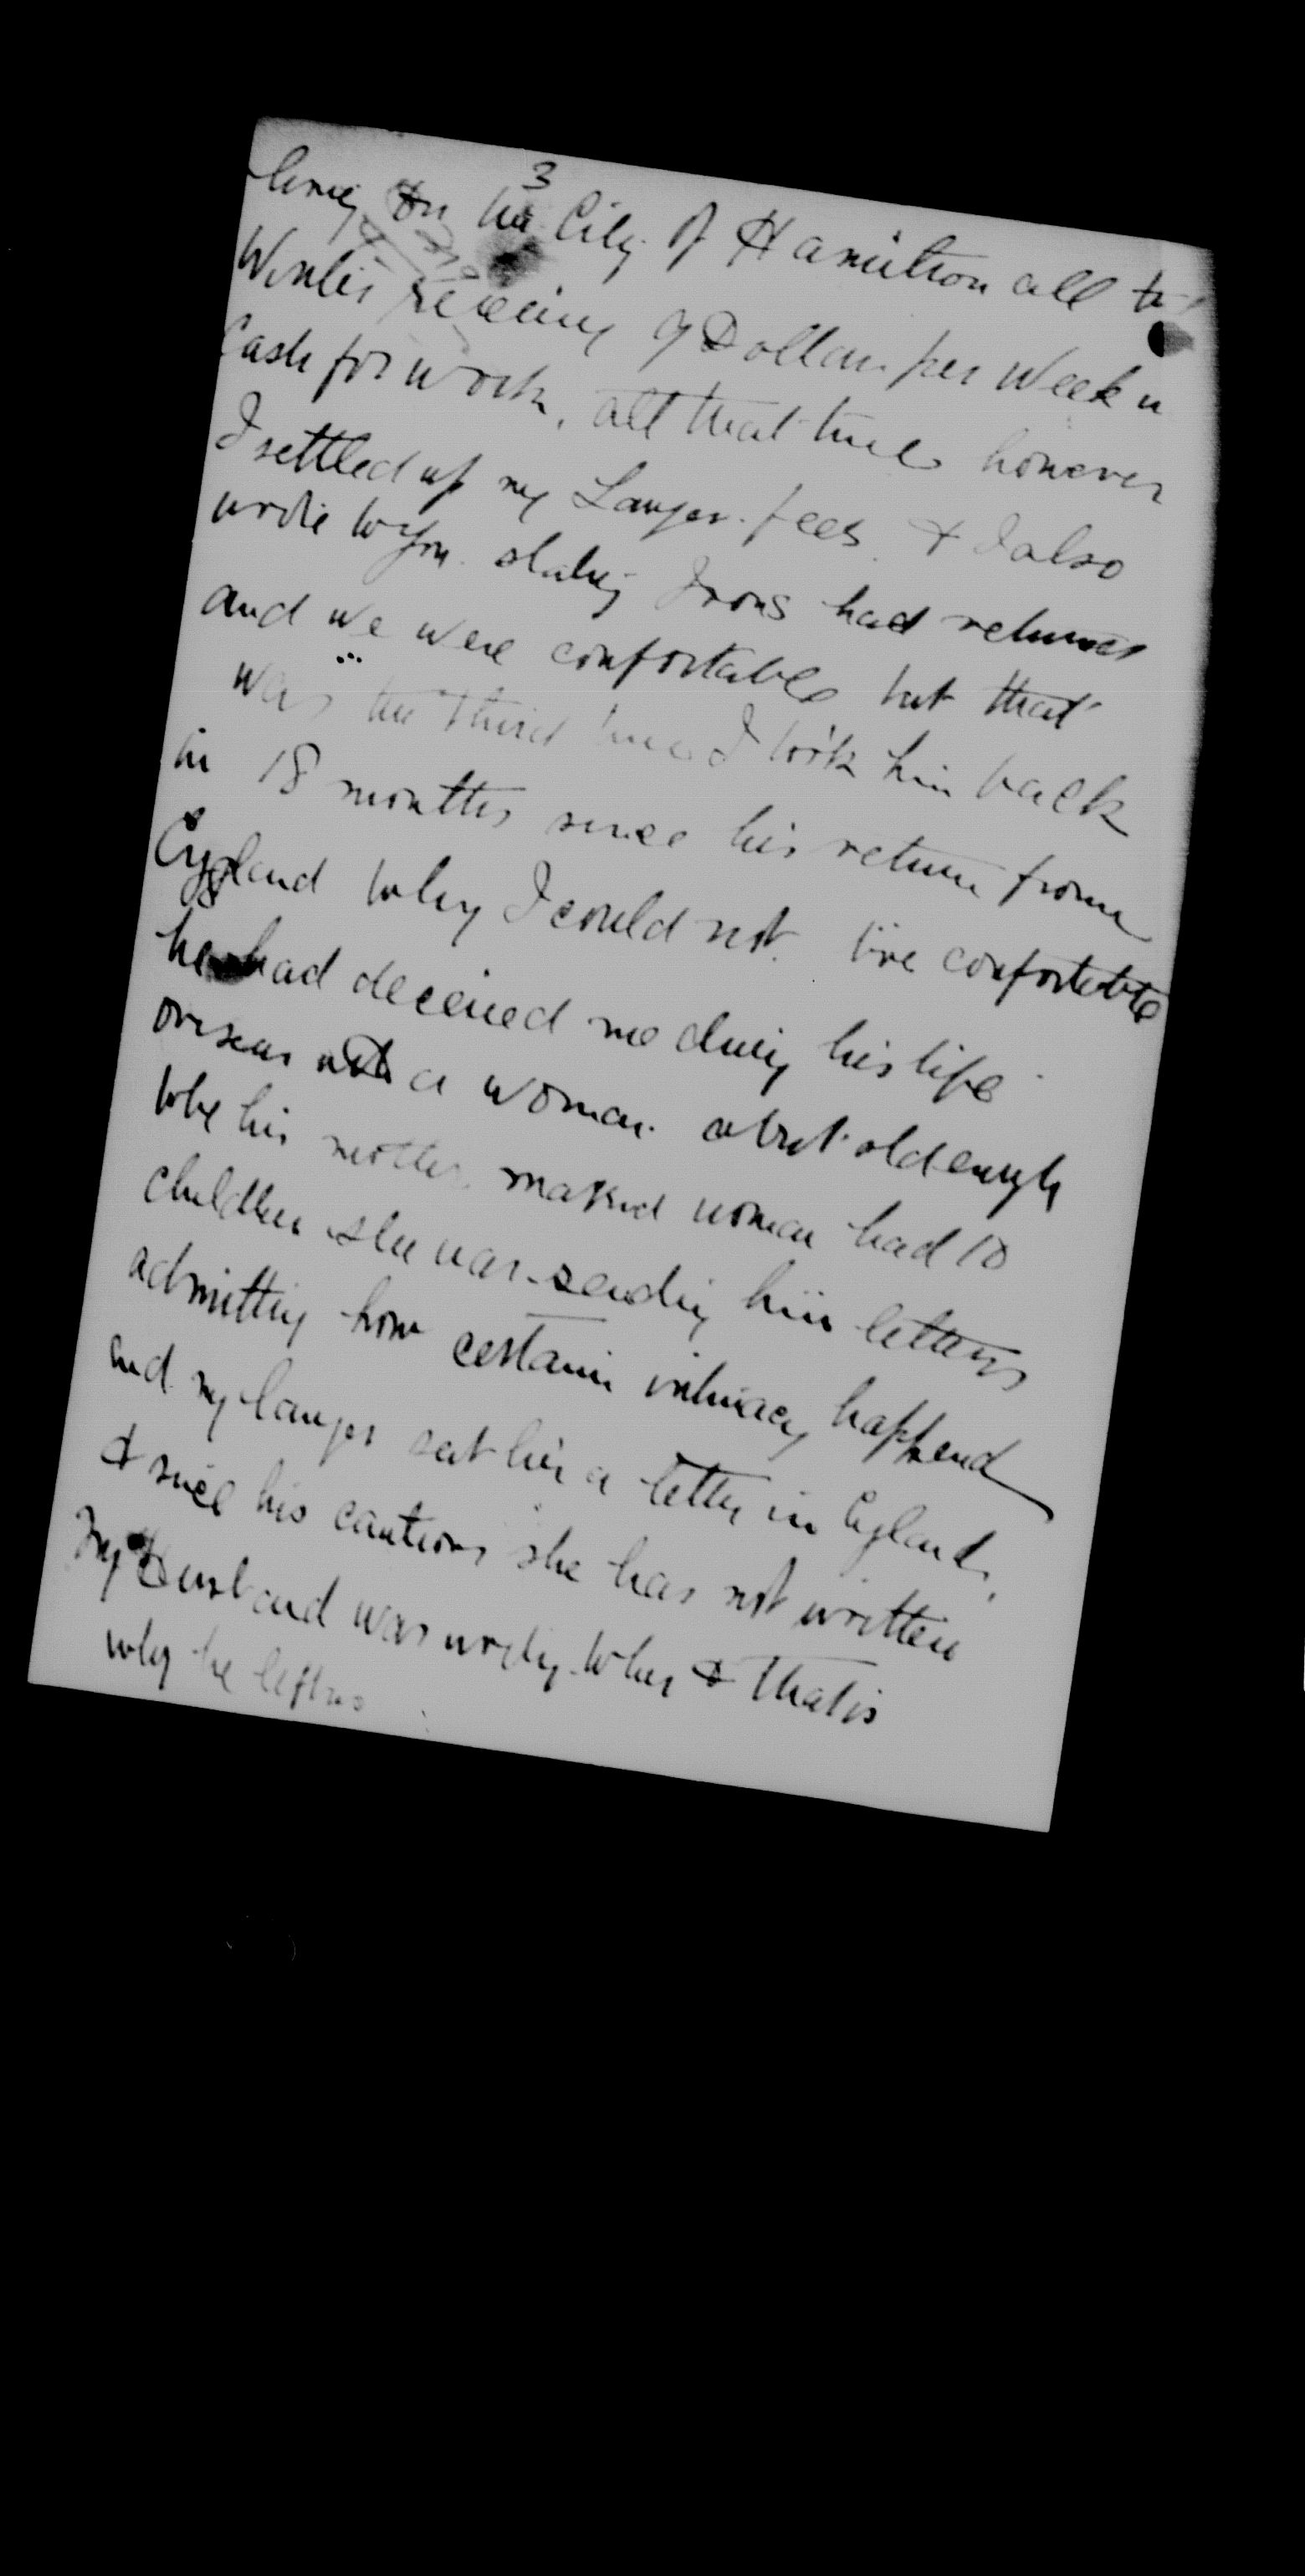 3
living in the City of Hamilton all
Winter receiving 9 Dollars per Week
Cash for work, all that time however
I settled up my Lawyer fees & I also
wrote to you stating Irons had returned
and we were confortable but that
was the third time I took him back
in 18 months since his return from
England why I could not live confortable
he had deceived me during his life
overseas with a woman about old enough
to be his mother married woman had 10
children she was sending him letters
admitting how certain intimacy happend
and my lawyer sent her a letter in England,
& since his cautions she has not written
my Husband was writing to her & that is
why he left us